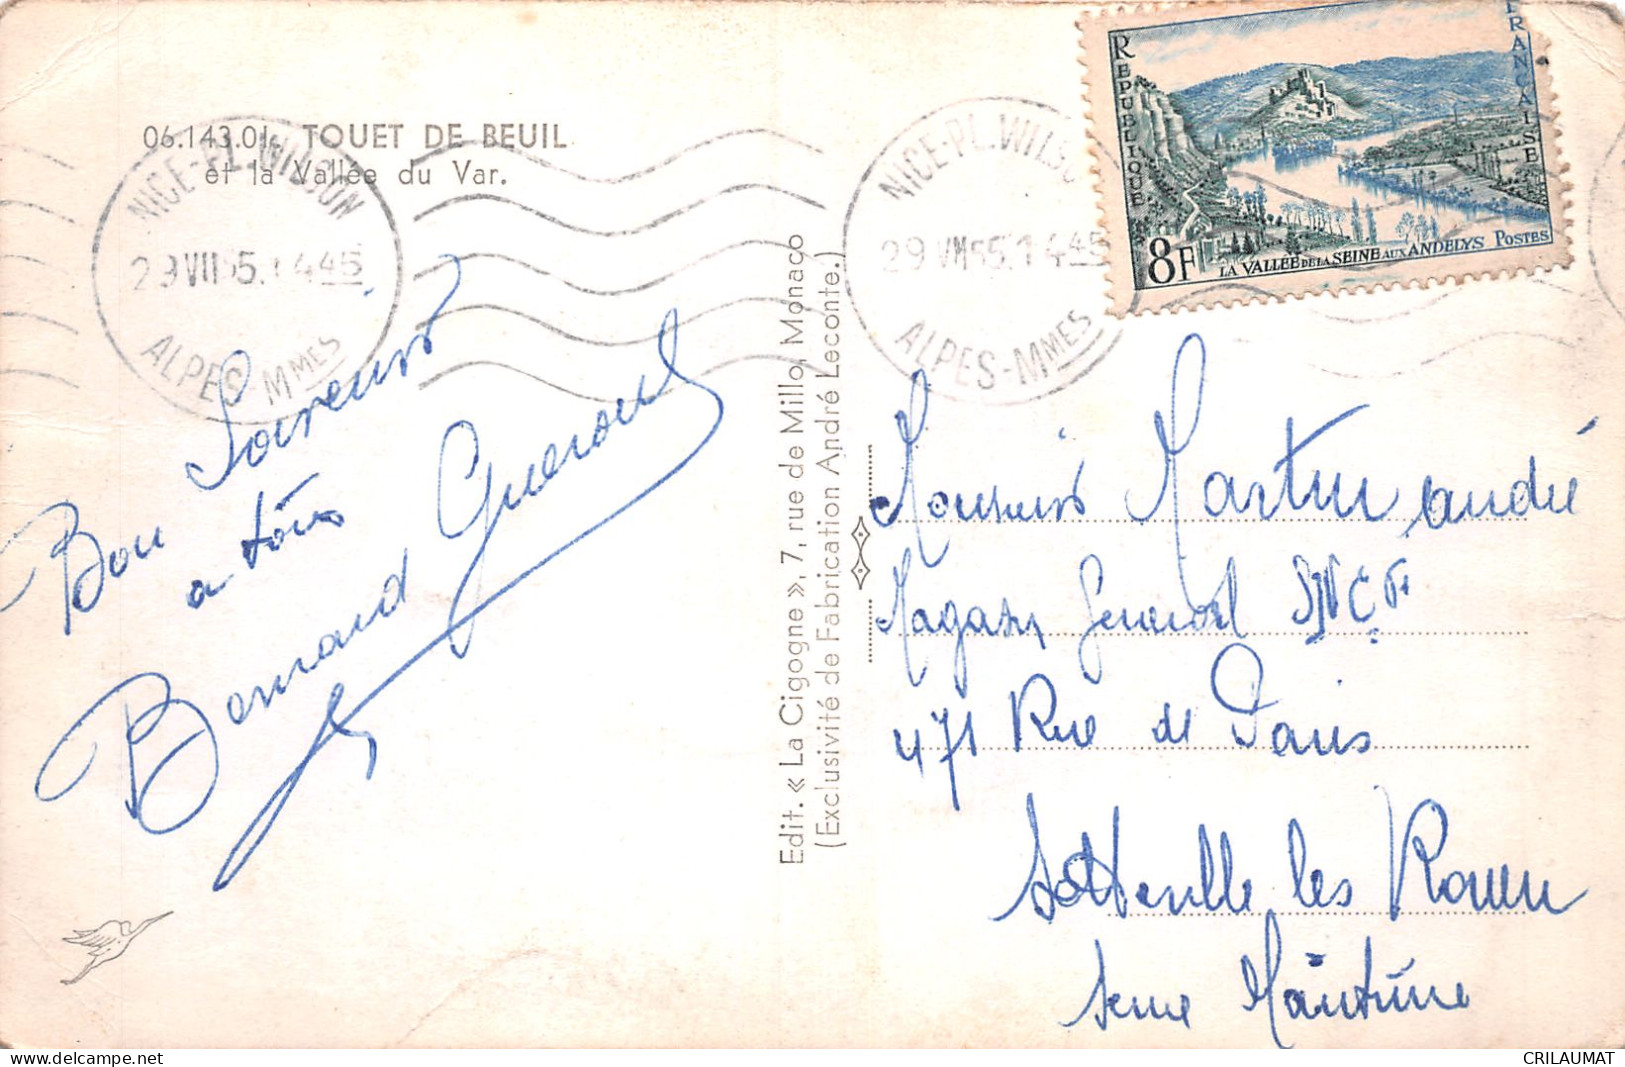 06.143.01. TOUET DE BEUIL
et la Vallée du Var.
NICE-PL.WILSON
29 VII 55.1445
ALPES-MMES
NICE-PL.WILSO
29 VII 55.1445
ALPES-MMES
REPUBLIQUE
FRANCAISE
8F
LA VALLÉE DE LA SEINE AUX ANDELYS POSTES
Bon Souvenir
a tous
Bernard Gueroult
Edit. « La Cigogne », 7, rue de Millo, Monaco
(Exclusivité de Fabrication André Leconte.)
Monsieur Martin andré
Magasin General SNCF
471 Rue de Paris
Sotteville les Rouen
Seine Maritime
CRILAUMAT